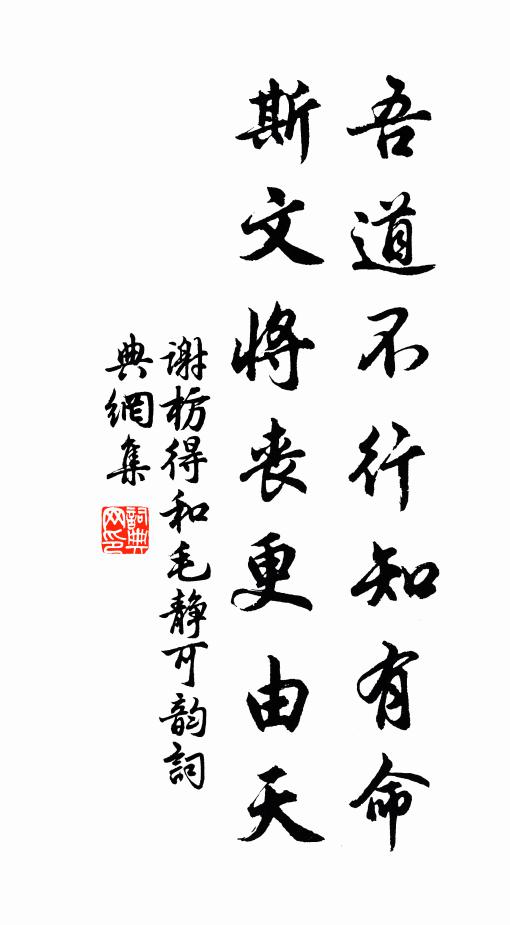 吾道不行知有命
斯文將喪更由天
謝枋得和毛靜可韵詞
典網集
詞典
网印